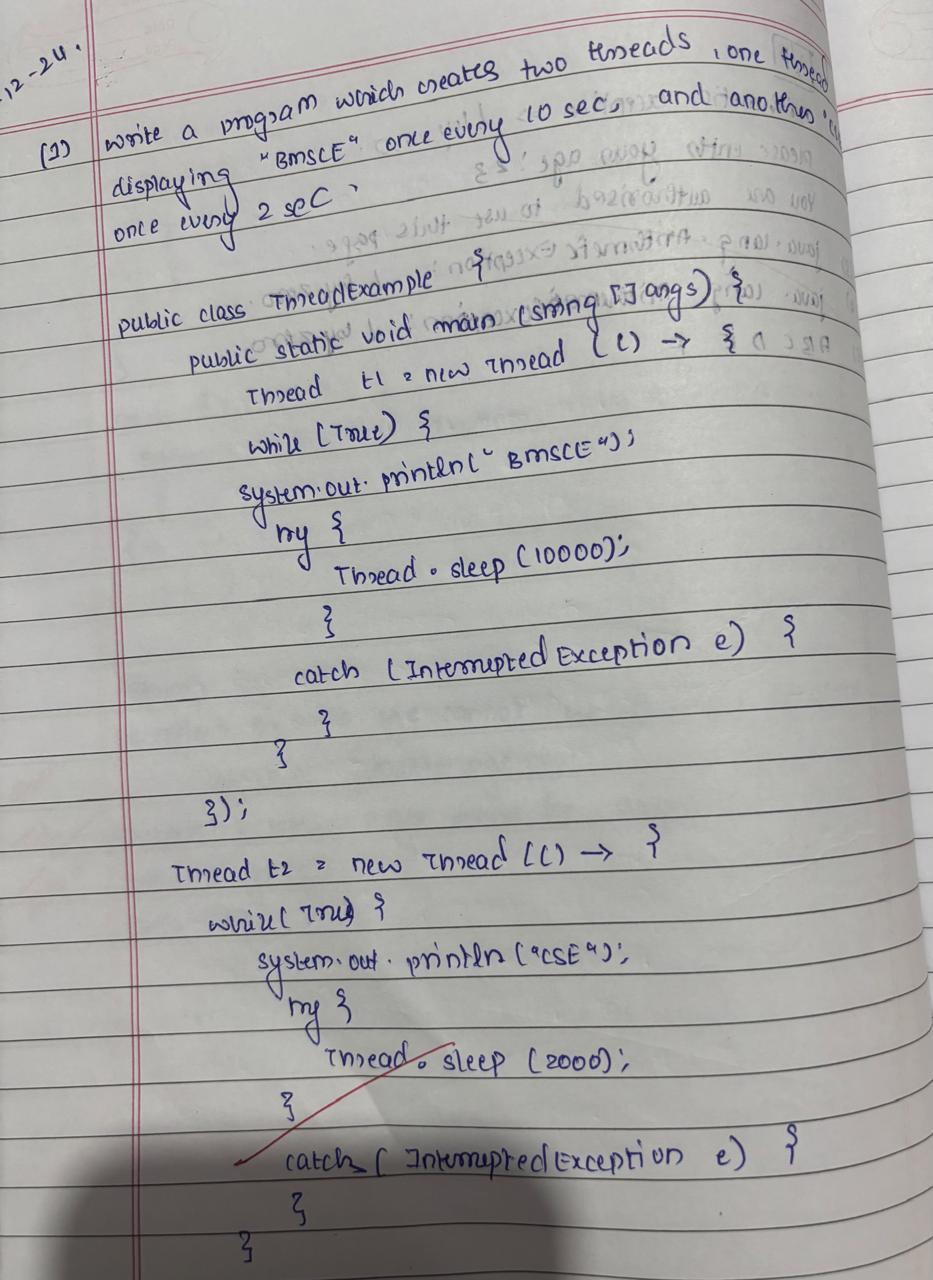 12-24.
(1) write a program which creates two threads, one thread
displaying "BMSCE" once every 10 sec, and another
once every 2 sec
public class ThreadExample {
public static void main (string [] args) {
Thread t1 = new Thread (() -> {
while (True) {
system.out.println(" BMSCE");
try {
Thread.sleep (10000);
}
catch (Interrupted Exception e) {
}
}
});
Thread t2 = new Thread (() -> {
while (True) {
system.out.println ("CSE");
try {
Thread.sleep (2000);
}
catch (Interrupted Exception e) {
}
}